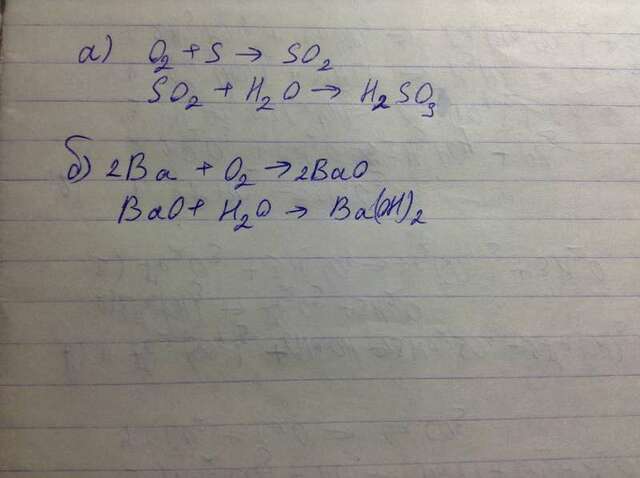 а) O₂ + S → SO₂
SO₂ + H₂O → H₂SO₃
б) 2Ba + O₂ → 2BaO
BaO + H₂O → Ba(OH)₂